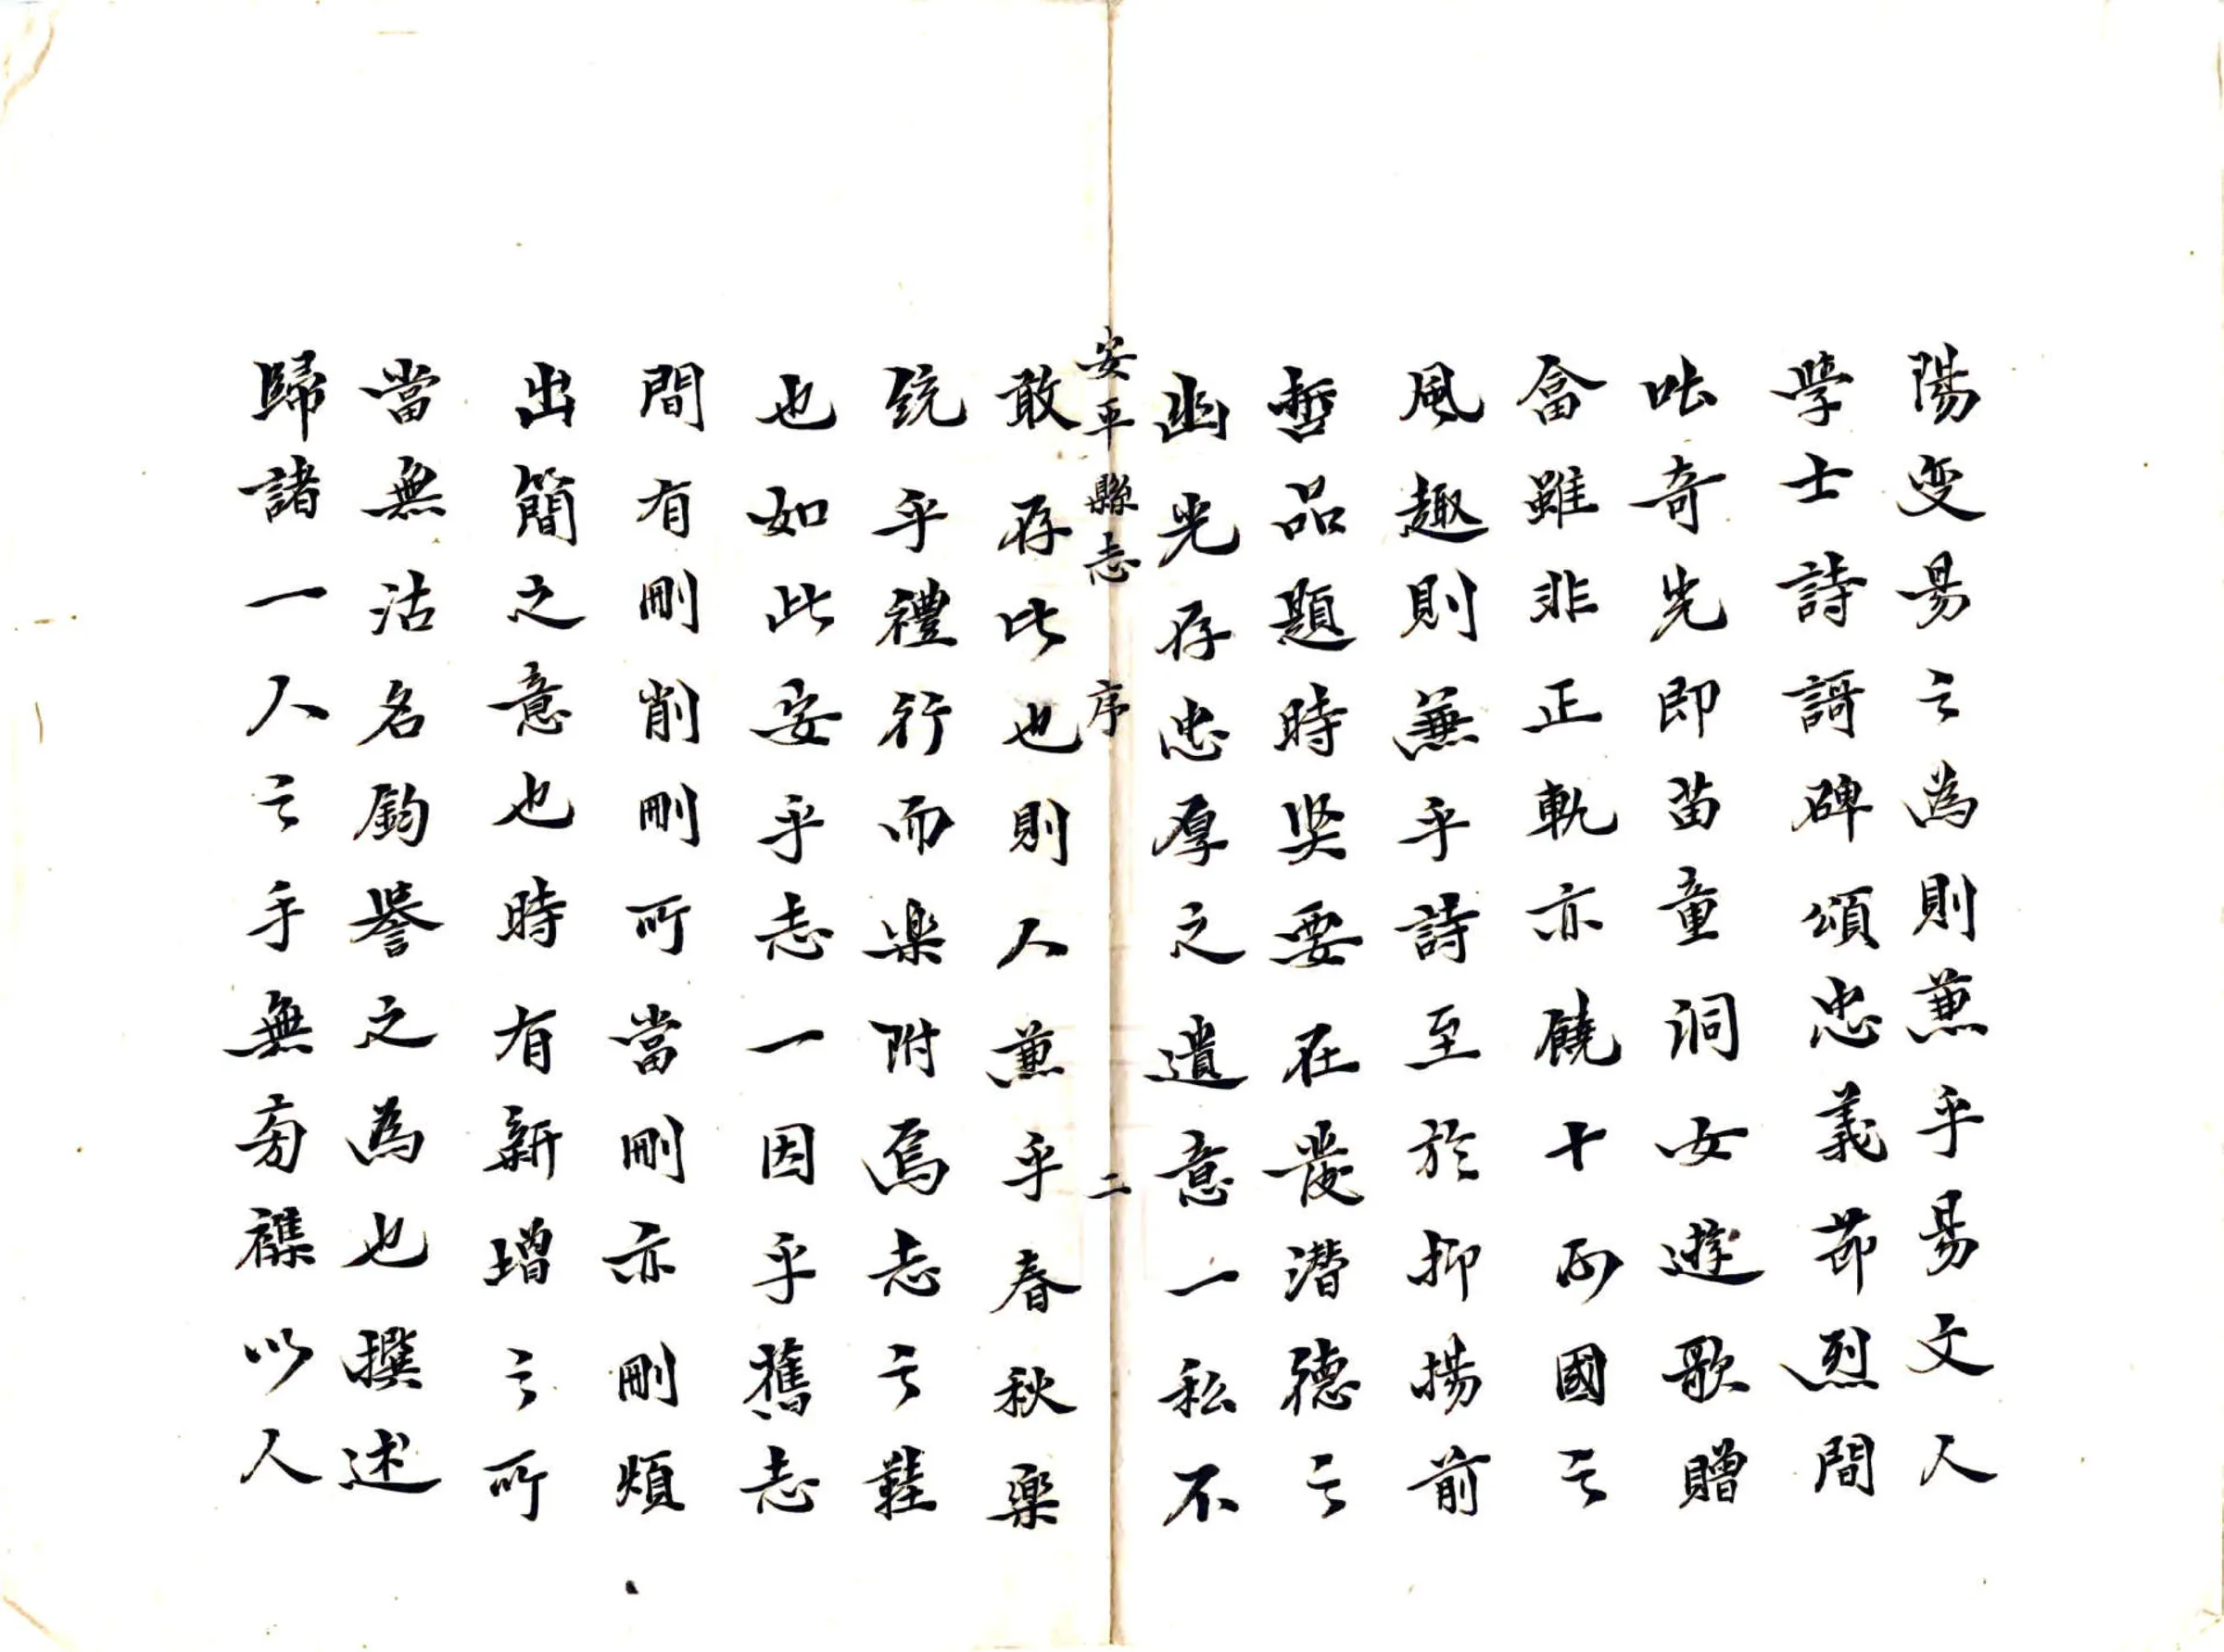 陽变易之為則蕙乎易文人
學士詩謌碑頌忠義節烈間
吐奇先即苗童洞女遊歌贈
畣雖非正軌亦饒十五國之
風趣則蕙乎詩至於抑揚前
哲品題時奖要在發潜德之
幽光存忠厚之遺意一私不
安平縣志 序 二
敢存此也則人蕙乎春秋樂
统乎禮行而樂附焉志之難
也如此安乎志一因乎舊志
間有刪削刪所當刪亦刪煩
出簡之意也時有新增之所
當無沽名鈞譽之為也撰述
歸諸一人之手無旁襍以人